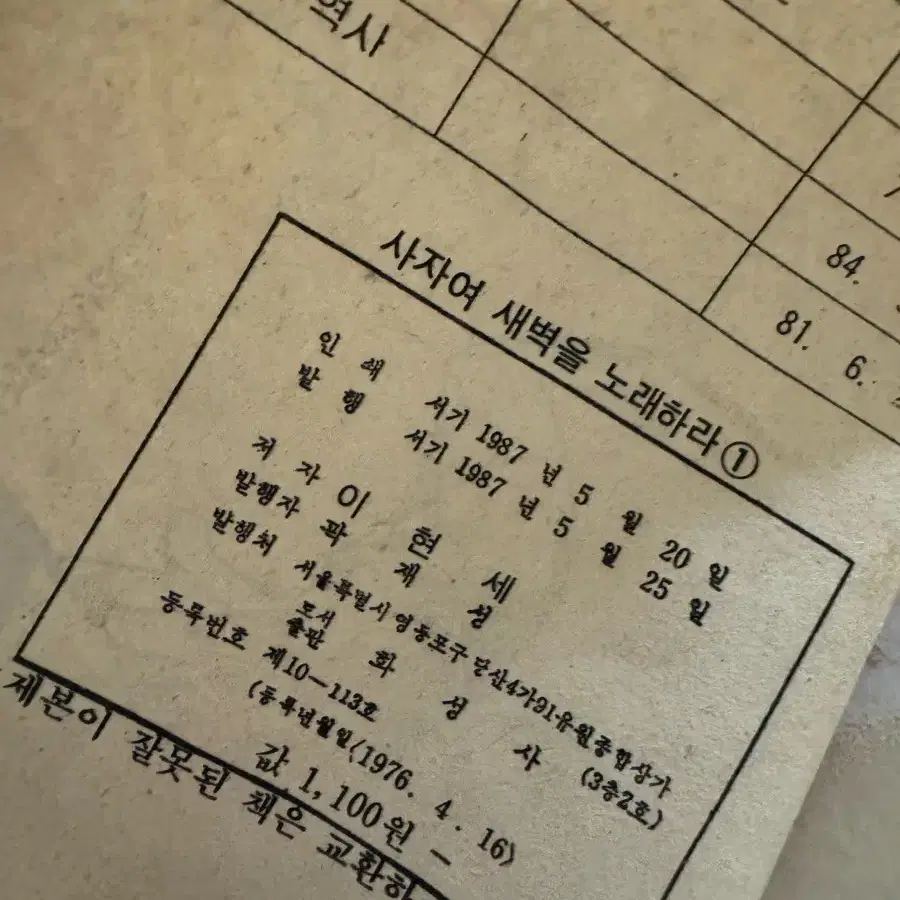 역사
84.
81. 6.
사자여 새벽을 노래하라 ①
인 쇄 서기 1987 년 5 월 20 일
발 행 서기 1987 년 5 월 25 일
저 자 이 현 세
발행자 곽 재 성
발행처 서울특별시 영등포구 당산4가91유원종합상가
(3층2호)
도서출판 화 성 사
등록번호 제10-113호
(등록년월일〈1976. 4. 16〉
값 1,100원 -
제본이 잘못된 책은 교환하